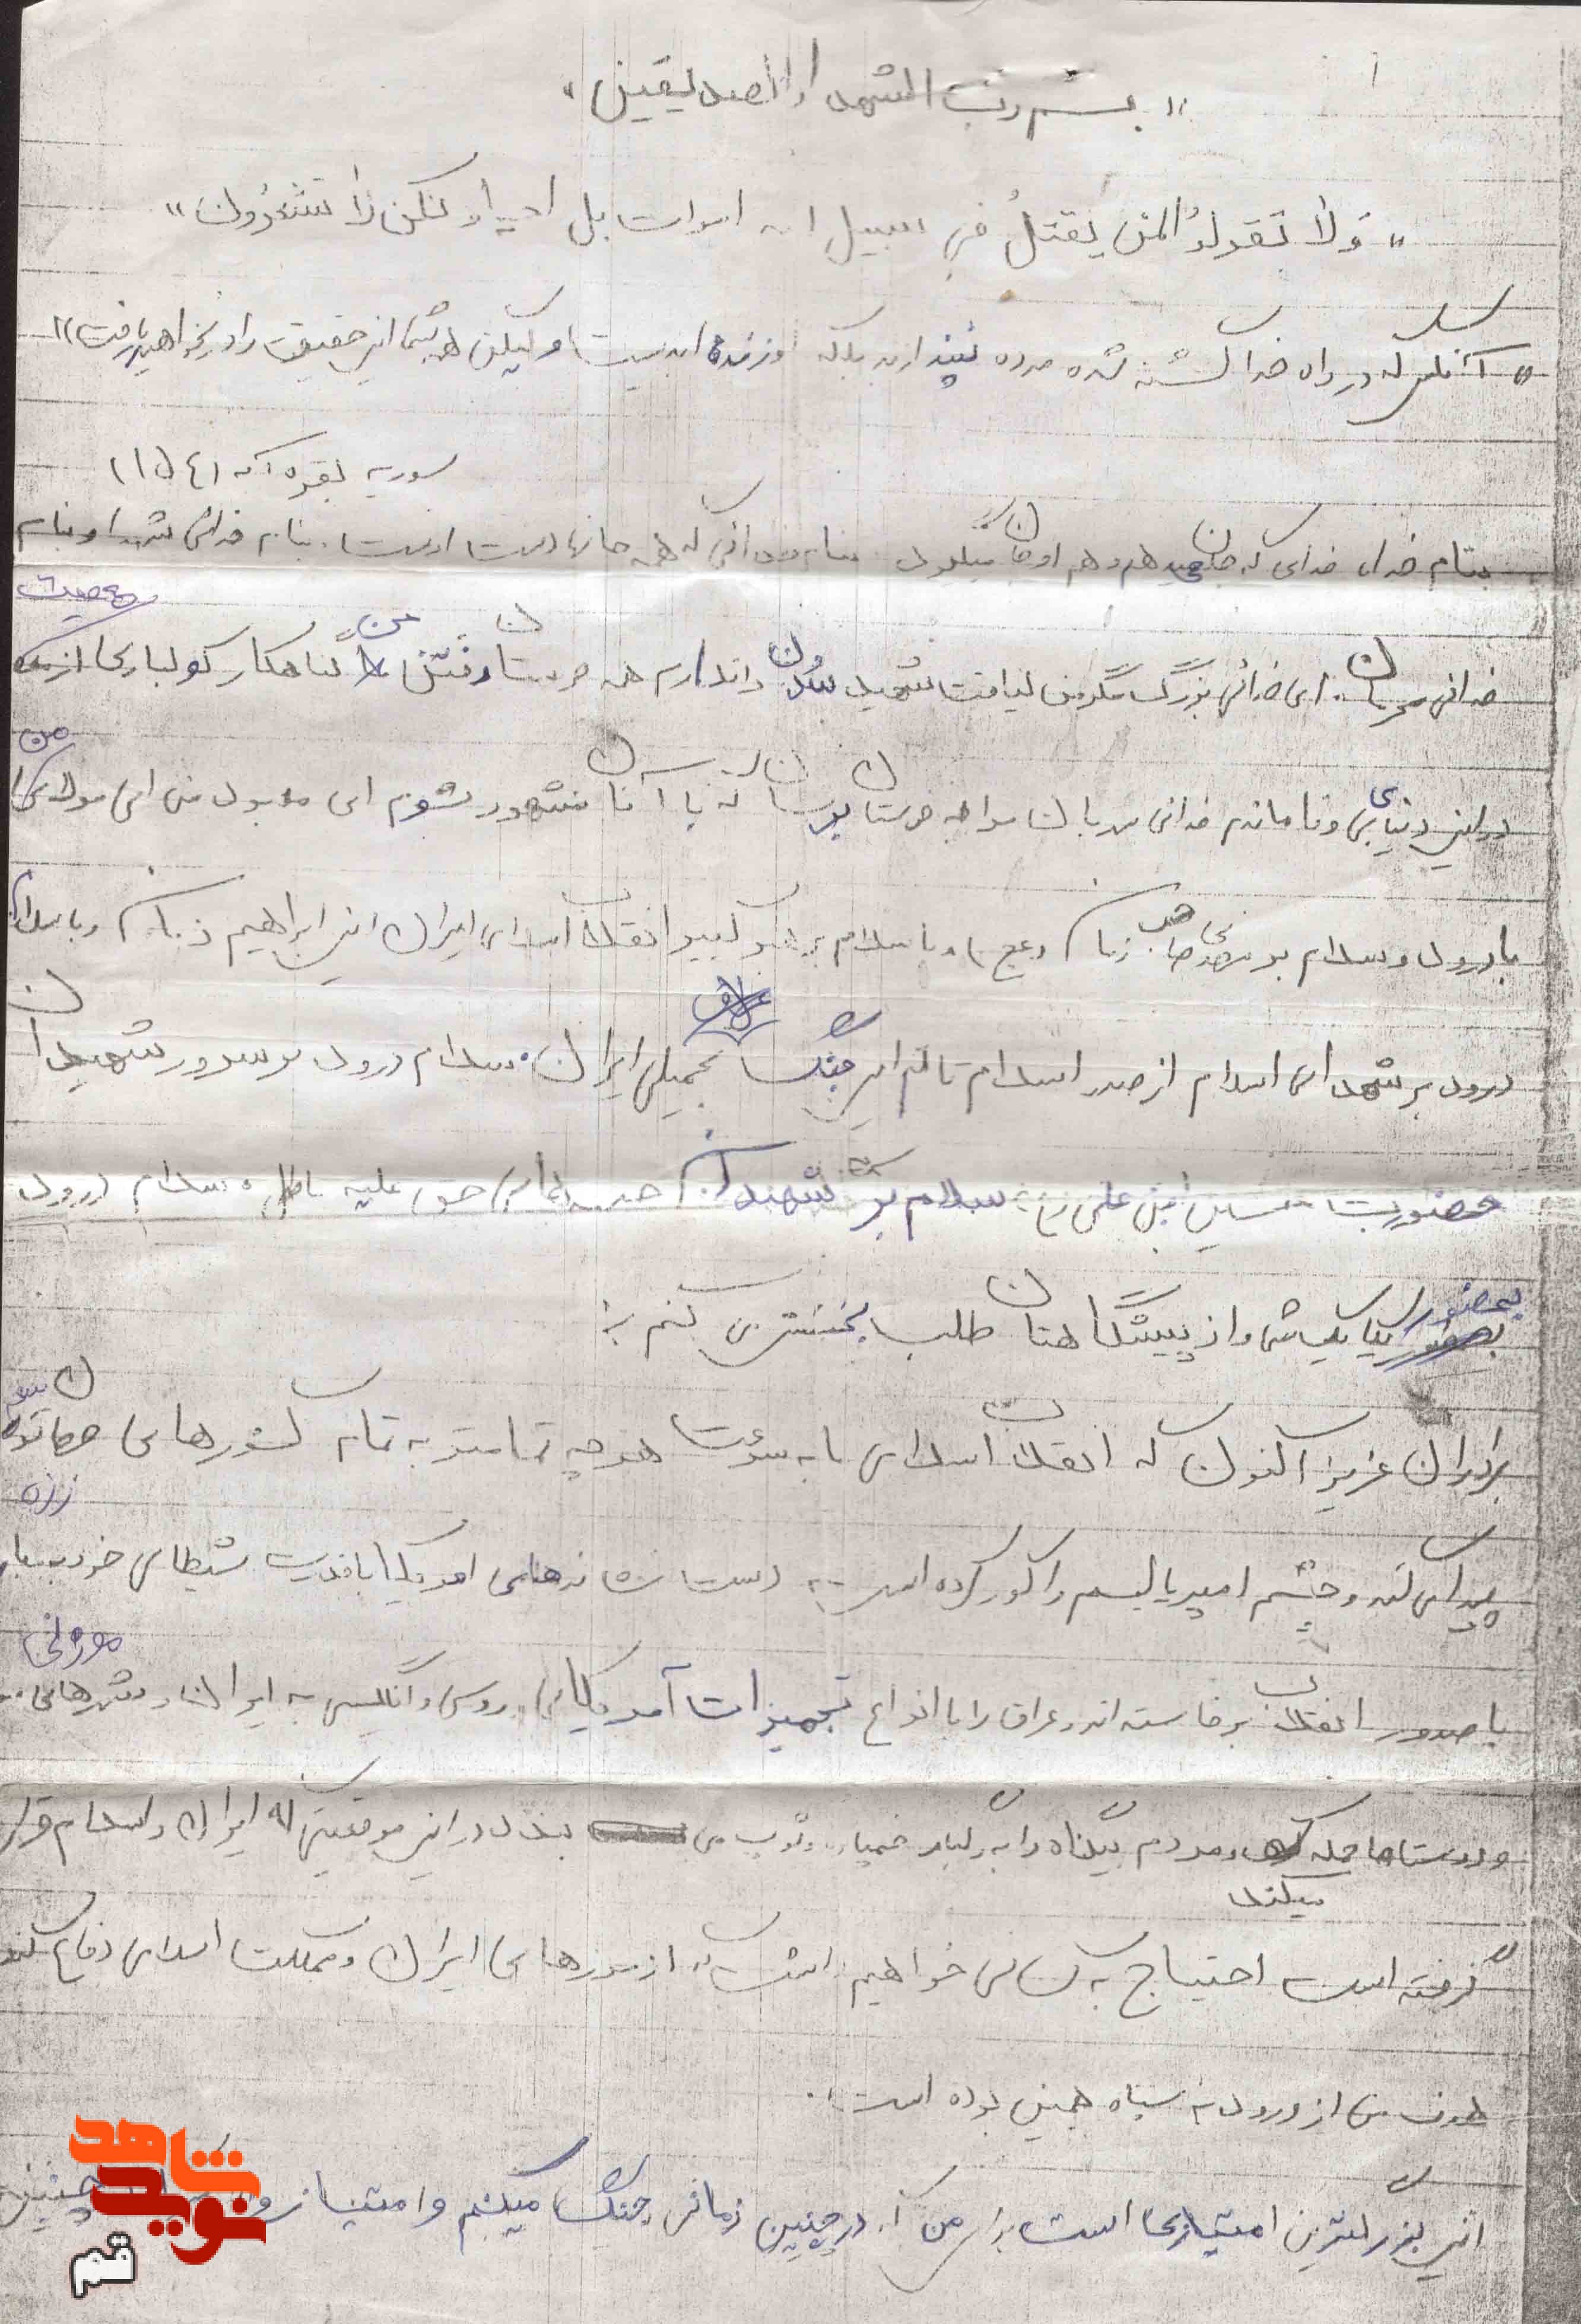 ۱
«بسم رب الشهدا والصدیقین»
«وَلا تقولوُ المن یقتلُ فی سبیل الله اموات بل احیاء ولکن لا تشعروُن»
«آنکس که در راه خدا کشته شده مرده نپندارید بلکه او زنده ابدیست ولیکن همه شما این حقیقت را در نخواهید یافت»
سوریه بقره آیه (۱۵٤)
بنام خدا، خدای که جان میدهد و هم او جان میگیرد بنام خدائی که همه جانها دست اوست، بنام خدائی شهدا و بنام
خدائی مهربان. ای خدائی بزرگ مگر من لیاقت شهید شدن را ندارم همه دوستان رفتن من گناهکار کولباری از معصیت
در این دنیایی وفا ماندم خدائی مهربان مرا به دوستان برسان که با آنان مشهور شوم ای معبود من ای مولای من
با درود و سلام بر مهدی صاحب زمان (عج) و با سلام بر رهبر کبیر انقلاب اسلامی ایران این ابراهیم زمان و با سلام
درود بر شهدای اسلام از صدر اسلام تا جنگ تحمیلی ایران. سلام درود بر سرور شهیدان
حضورت حسین ابن علی (ع) سلام بر شهیدان حق علیه باطل، سلام درود
بحضور یکایک شما و از پیشگاهتان طلب بخشش می کنم
برادران عزیز اکنون که انقلاب اسلامی ما به سرعت هر چه تمامتر به تمام کشورهای
پیدا می کند و چشم امپریالیسم را کور کرده است دست نشانده‌های امریکا با قدرت شیطانی خود
با صدور انقلاب برخاسته‌اند و عراق را با انواع تجهیزات آمریکایی، روسی و انگلیسی به ایران و شهرهای مرزی
و روستاها حمله میکند و مردم بیگناه را به رگبار خمپاره و توپ می بندد در این موقعیتی که ایران و اسلام قرار
گرفته است احتیاج به کسانی خواهیم داشت که از مرزهای ایران و مملکت اسلامی دفاع کند
هدف من از ورود به سپاه همین بوده است.
این بزرگترین امتیازی است برای من که در چنین زمانی جنگ میکنم و امتیاز چنین
شاهد
نوید
قم